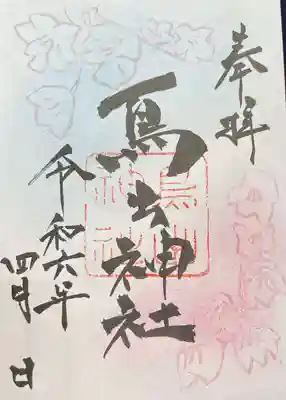 奉拝
烏出神社
令和六年
四月 日